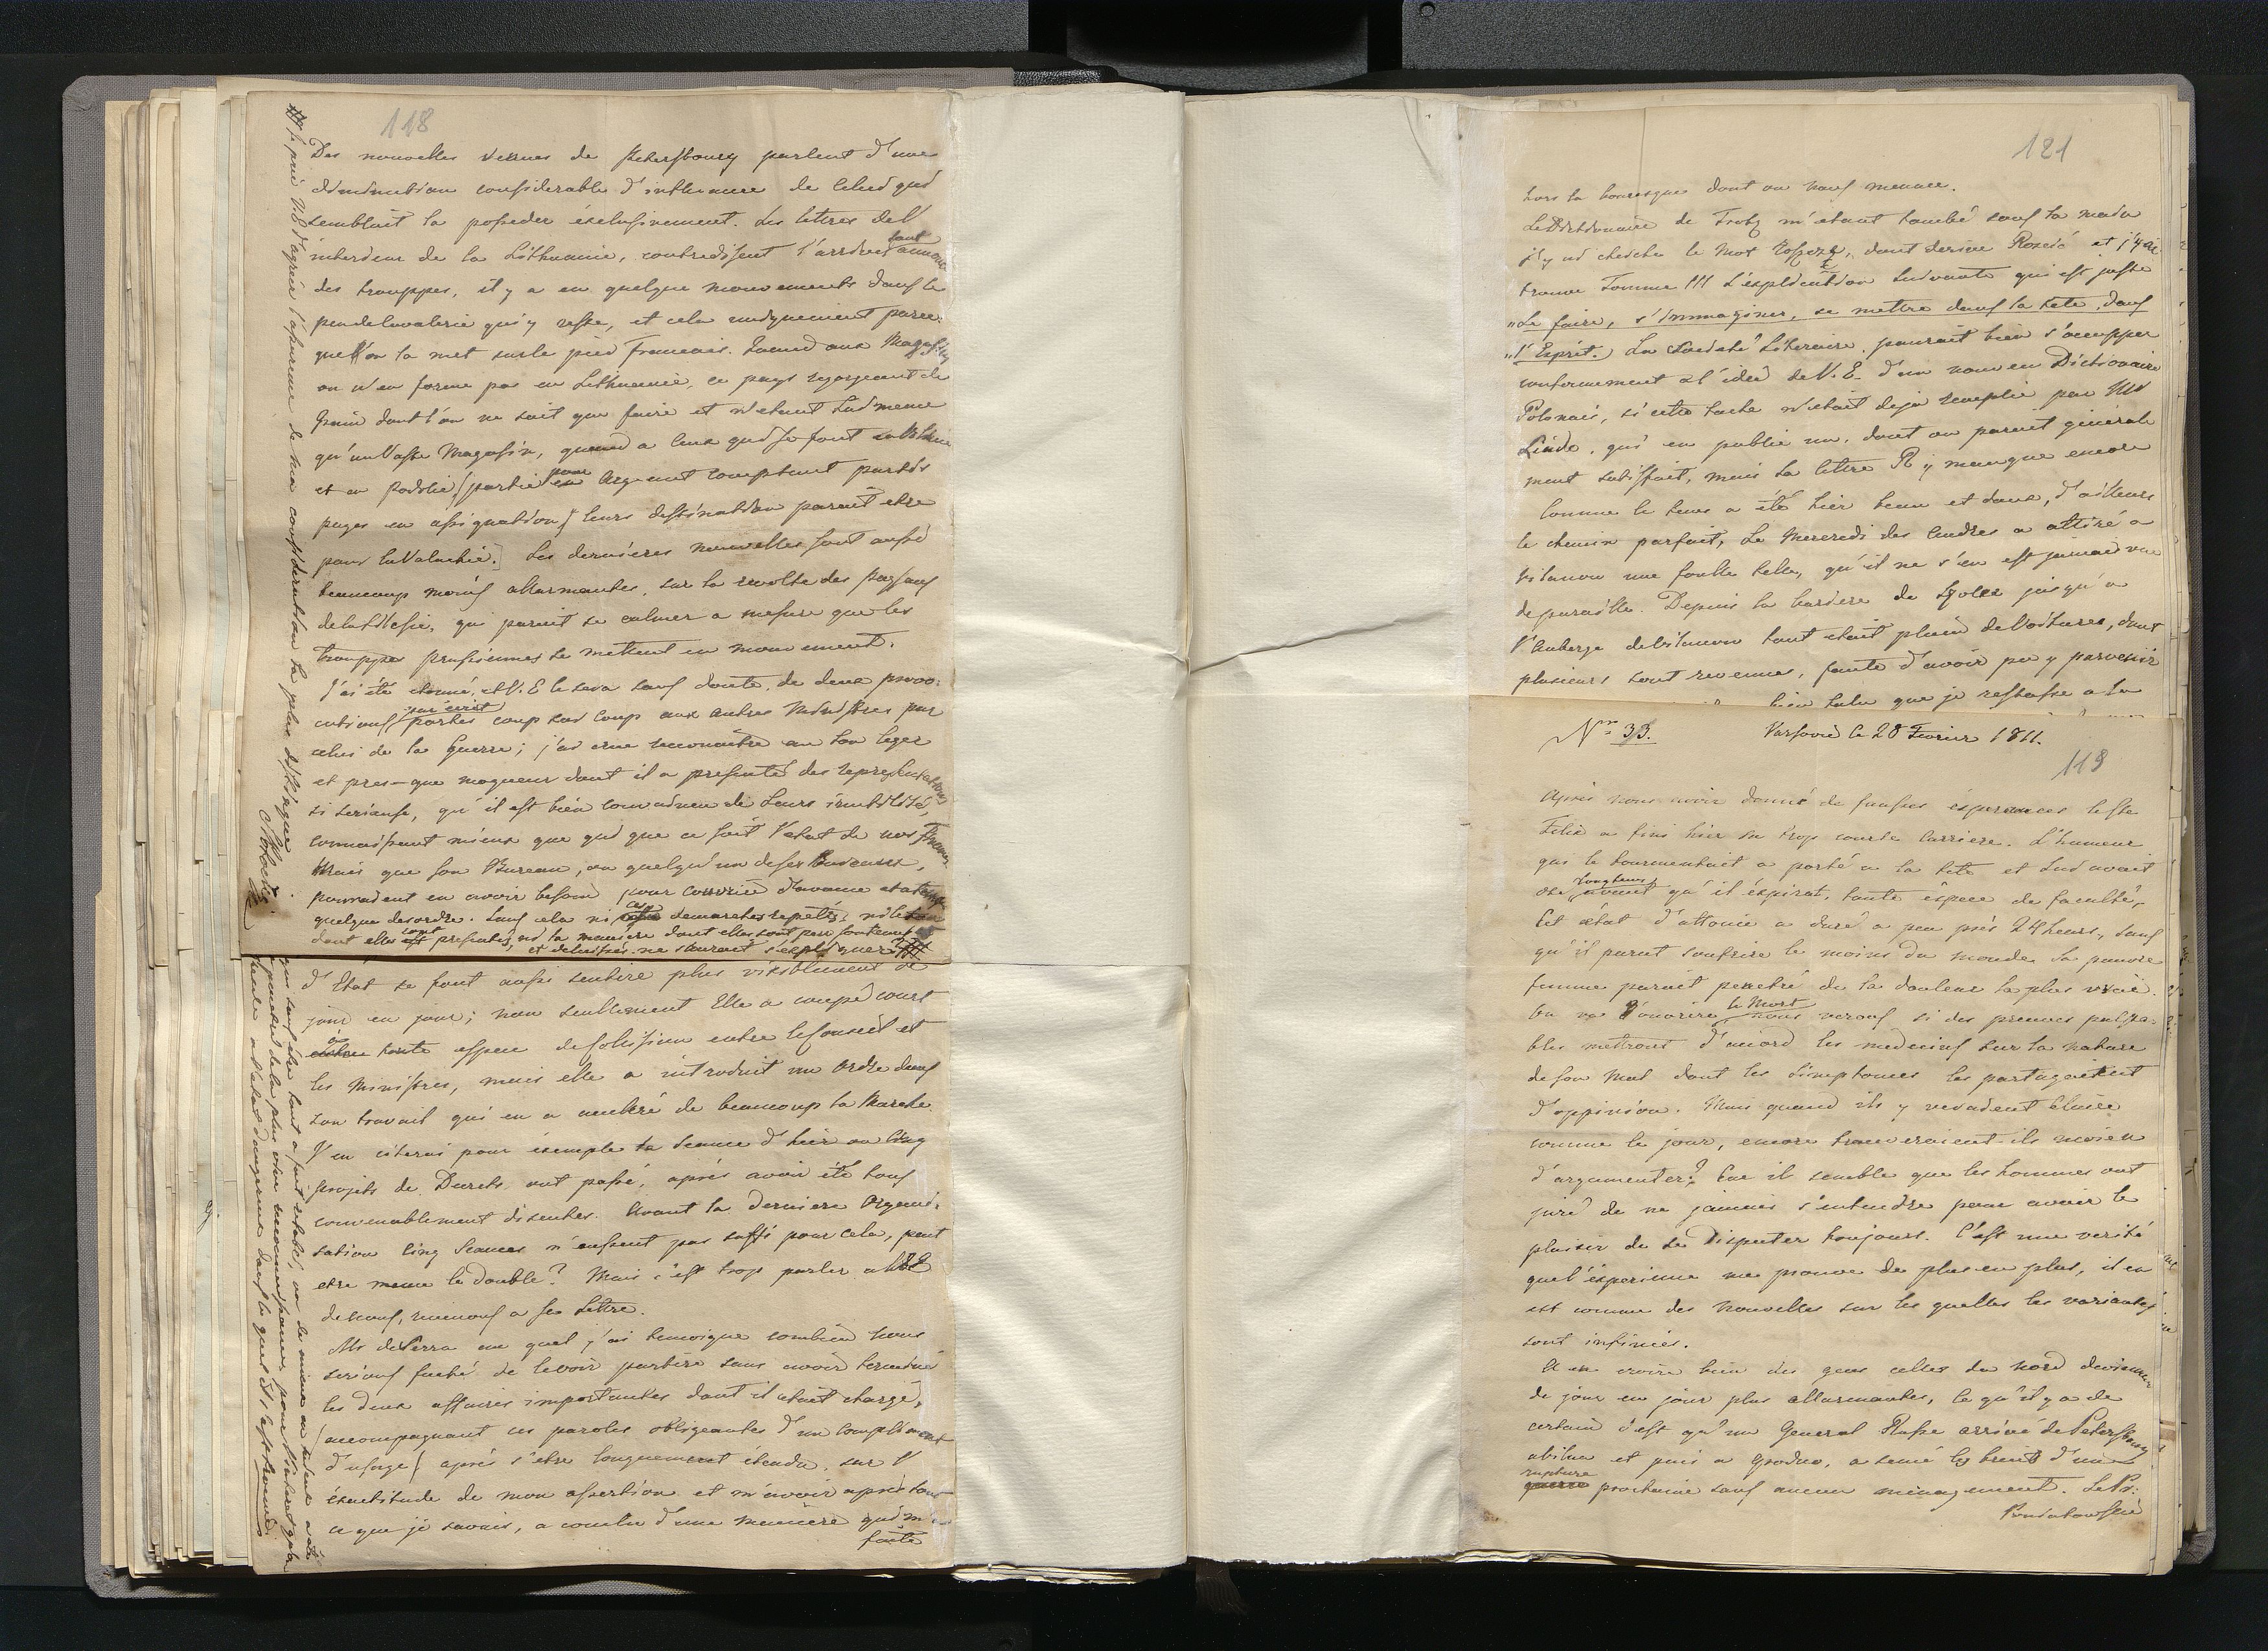 118
Des nouvelles venues de Petersbourg parlent d'une
diminution considerable d'influence de celui qui
semblait la posseder éxclusivement. Les lettres del'
interieur de la Lithuanie, contredisent l'arrivée tant annoncé
des trouppes, il y a eu quelque mouvements dans le
peu de Cavalerie qui y reste, et cela uniquement parce
que l'on la met sur le pied Francais. Quand aux Magasins
on n'en forme pas en Lithuanie, ce pays regorgeant de
Grain dont l'on ne sait que faire et n'etant lui meme
qu'un Vaste Magasin, quand a ceux qui se font en Volhinie
et en Podolie, (partie pour argent comptant partie
payés en assignation) leurs destination parait etre
pour la Valachie. Les dernieres nouvelles sont aussi
beaucoup moins allarmantes, sur la revolte des Paysans
de la Silesie, qui parait se calmer a mesure que les
trouppes prussiennes se mettent en mouvement.
J'ai été etonné, et V. E le sera sans doute, de deux provo-
cations par écrit portés coup sur coup aux autres Ministres par
celui de la Guerre; j'ai crue reconnaitre au ton leger
et pres-que moqueur dont il a presenté des representations
si serieuse, qu'il est bien convaincu de leurs inutilité,
connaissant mieux que qui que ce soit l'etat de nos Finances
Mais que son Bureau, ou quelqu'un de ses Bureaux,
pourraient en avoir besoin pour couvrir d'avance
quelque desordre. Sans cela ni ces demarches repetés, ni le ton
dont elles sont presentés, ni la maniere dont elles sont peu
et delucidés ne sauraient s'expliquer
Je prie V.E d'agréer l'assurance de ma consideration la plus distinguée
d'Etat se font aussi sentire plus visiblement de
jour en jour; non seullement Elle a coupé court
a toute espece de Collision entre le Conseil et
les Ministres, mais elle a introduit un Ordre dans
son travail qui en a acceleré de beaucoup la Marche.
J'en citerai pour éxemple la Seance d'hier ou Cinq
projets de Decrets ont passé, après avoir été tous
convenablement discutés. Avant la derniere Organi-
sation Cinq Seances n'eussent pas suffi pour cela, peut
etre meme le double? Mais c'est trop parler a V.E
de nous, revenons a sa Lettre.
Mr de Serra au quel j'ai temoigné combien nous
serions faché de le voir partire sans avoir terminé
les deux affaires importantes dont il etait chargé,
(accompagnant ces paroles obligeantes d'un compliment
d'usage) après s'etre longuement étendu sur l'
éxactitude de mon assertion et m'avoir appris tout
ce que je savais, a conclu d'une maniere qui m'a
faite
121
hors la bourasque dont on nous menace.
Le Dictionaire de Trotz m'etant tombé sous la main
j'y ai cherché le Mot dont derive Roscić et j'y ai
trouvé Tomme III l'explication suivante qui est juste
„Se faire, s'immaginer, se mettre dans la tete, dans
„l'Esprit. La Société Literaire pourait bien s'occupper
conformement a l'idée de V. E. d'un nouveau Dictionaire
Polonais, si cette tache n'etait deja remplie par Mr
Linde, qui en publie un, dont on parait générale
ment satisfait, mais la lettre R y manque encore
Comme le tems a été hier beau et doux, d'ailleurs
le chemin parfait, Le Mercredi des Cendres a attiré a
Vilanow une foulle telle, qu'il ne s'en est jamais vue
de pareille. Depuis la bariere de jusqu'a
l'Auberge de Vilanow tout etait plain de Voitures, dont
plusieurs sont revenues, faute d'avoir pu y parvenir
que je restasse a la
Nro 33. Varsovie le 28 Fevrier 1811.
119
Après nous avoir donné de fausses ésperances le Cte
Felix a fini hier sa trop courte Carriere. L'humeur
qui le tourmentait a porté a la tete et lui avait
oté longtems avant qu'il éxpirat, toute éspece de faculté,
Cet état d'attonie a duré a peu près 24 heurs, sans
qu'il parut soufrire le moins du monde. Sa pauvre
femme parait penetré de la douleur la plus vraie.
On va l'ouvrire le Mort nous verons si des preuves palpa-
bles mettront d'accord les medecins sur la nature
de son Mal dont les Simptomes les partagaitent
d'oppinion. Mais quand ils y veraient claire
comme le jour, encore trouveraient-ils moien
d'argumenter? Car il semble que les hommes ont
juré de ne jamais s'entendre pour avoir le
plaisir de se Disputer toujours. C'est une verité
que l'éxperience me prouve de plus en plus, il en
est comme des Nouvelles sur les quelles les variantes
sont infinies.
A en croire bien des gens celles du Nord deviennent
de jour en jour plus allarmantes, ce qu'il y a de
certain c'est qu'un General Russe arrivé de Petersbourg
a Vilna et puis a Grodno, a semé les bruits d'une
rupture prochaine sans aucun ménagement. Le Pr:
Poniatowski